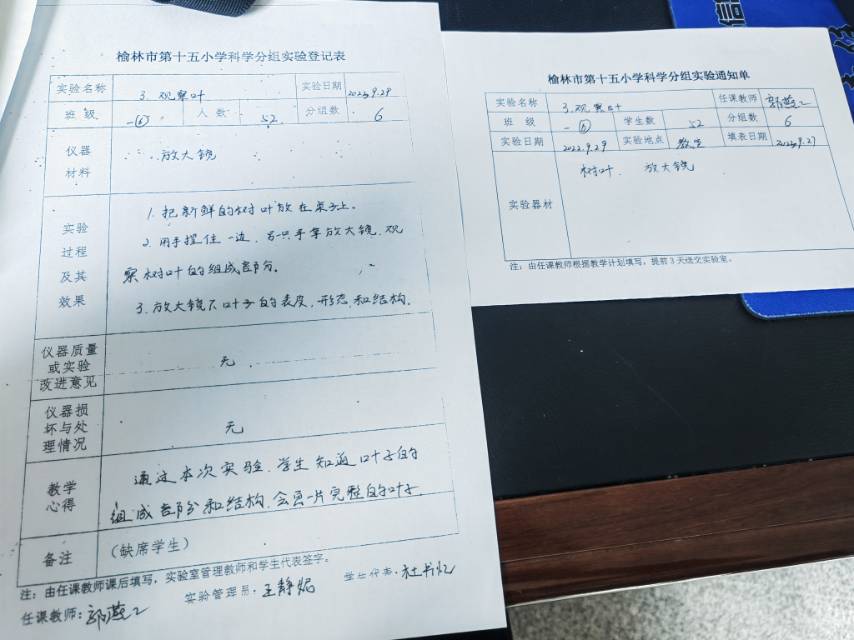 榆林市第十五小学科学分组实验登记表
实验名称 3. 观察叶 实验日期 2022.9.29
班 级 一(6) 人 数 52 分组数 6
仪器
材料
放大镜
实验
过程
及其
效果
1. 把新鲜的树叶放在桌子上。
2. 用手捏住一边,另一只手拿放大镜,观
察树叶的组成部分。
3. 放大镜下叶子的表皮,形态和结构。
仪器质量
或实验
改进意见
无
仪器损
坏与处
理情况
无
教学
心得
通过本次实验,学生知道叶子的
组成部分和结构,会画一片完整的叶子
备注 (缺席学生)
注:由任课教师课后填写,实验室管理教师和学生代表签字。
任课教师: 实验管理员:王静 学生代表:杜书
榆林市第十五小学科学分组实验通知单
实验名称 3. 观察叶 任课教师
班 级 一(6) 学生数 52 分组数 6
实验日期 2022.9.29 实验地点 教室 填表日期 2022.9.27
实验器材
树叶. 放大镜
注:由任课教师根据教学计划填写,提前3天送交实验室。
信